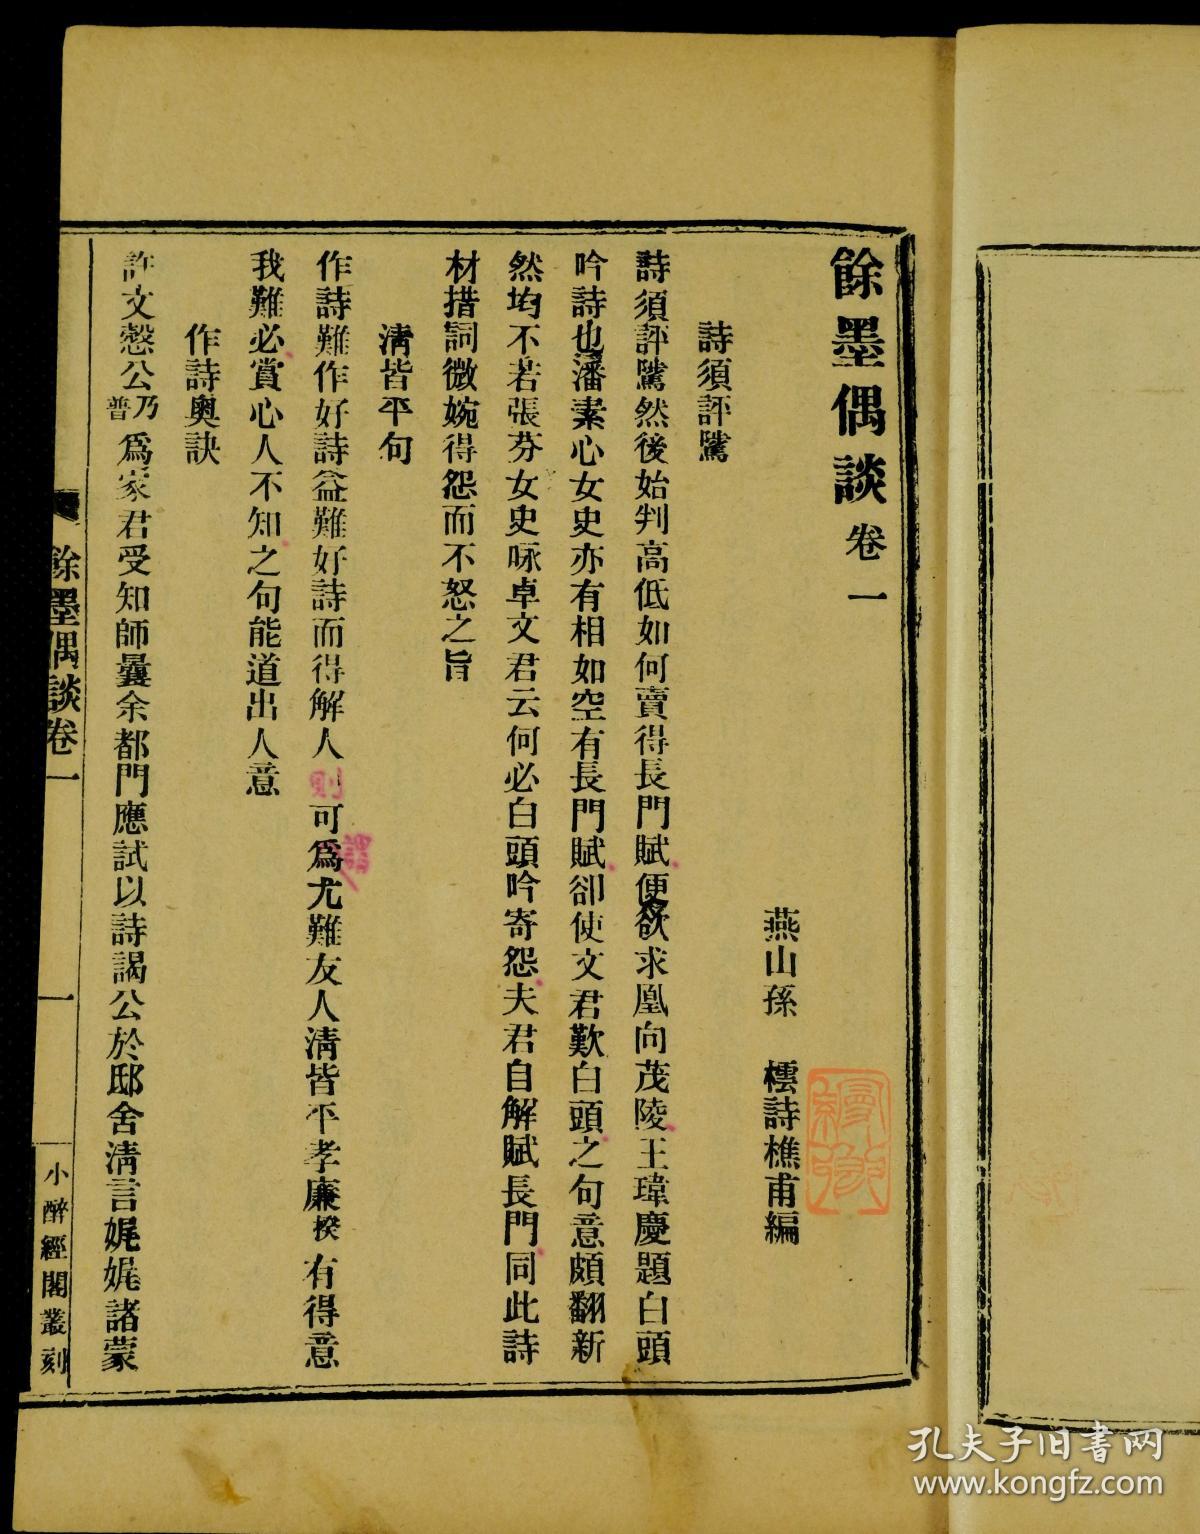 餘墨偶談卷一
燕山孫　橒詩樵甫編
詩須評騭
詩須評騭然後始判高低如何賣得長門賦便欲求凰向茂陵王瑋慶題白頭
吟詩也潘素心女史亦有相如空有長門賦卻使文君歎白頭之句意頗翻新
然均不若張芬女史咏卓文君云何必白頭吟寄怨夫君自解賦長門同此詩
材措詞微婉得怨而不怒之旨
淸皆平句
作詩難作好詩益難好詩而得解人則可爲尤難友人淸皆平孝廉揆有得意
謂
我難必賞心人不知之句能道出人意
作詩奧訣
許文慤公乃普爲家君受知師曩余都門應試以詩謁公於邸舍淸言娓娓諸蒙
餘墨偶談卷一
一
小醉經閣叢刻
孔夫子旧书网
www.kongfz.com